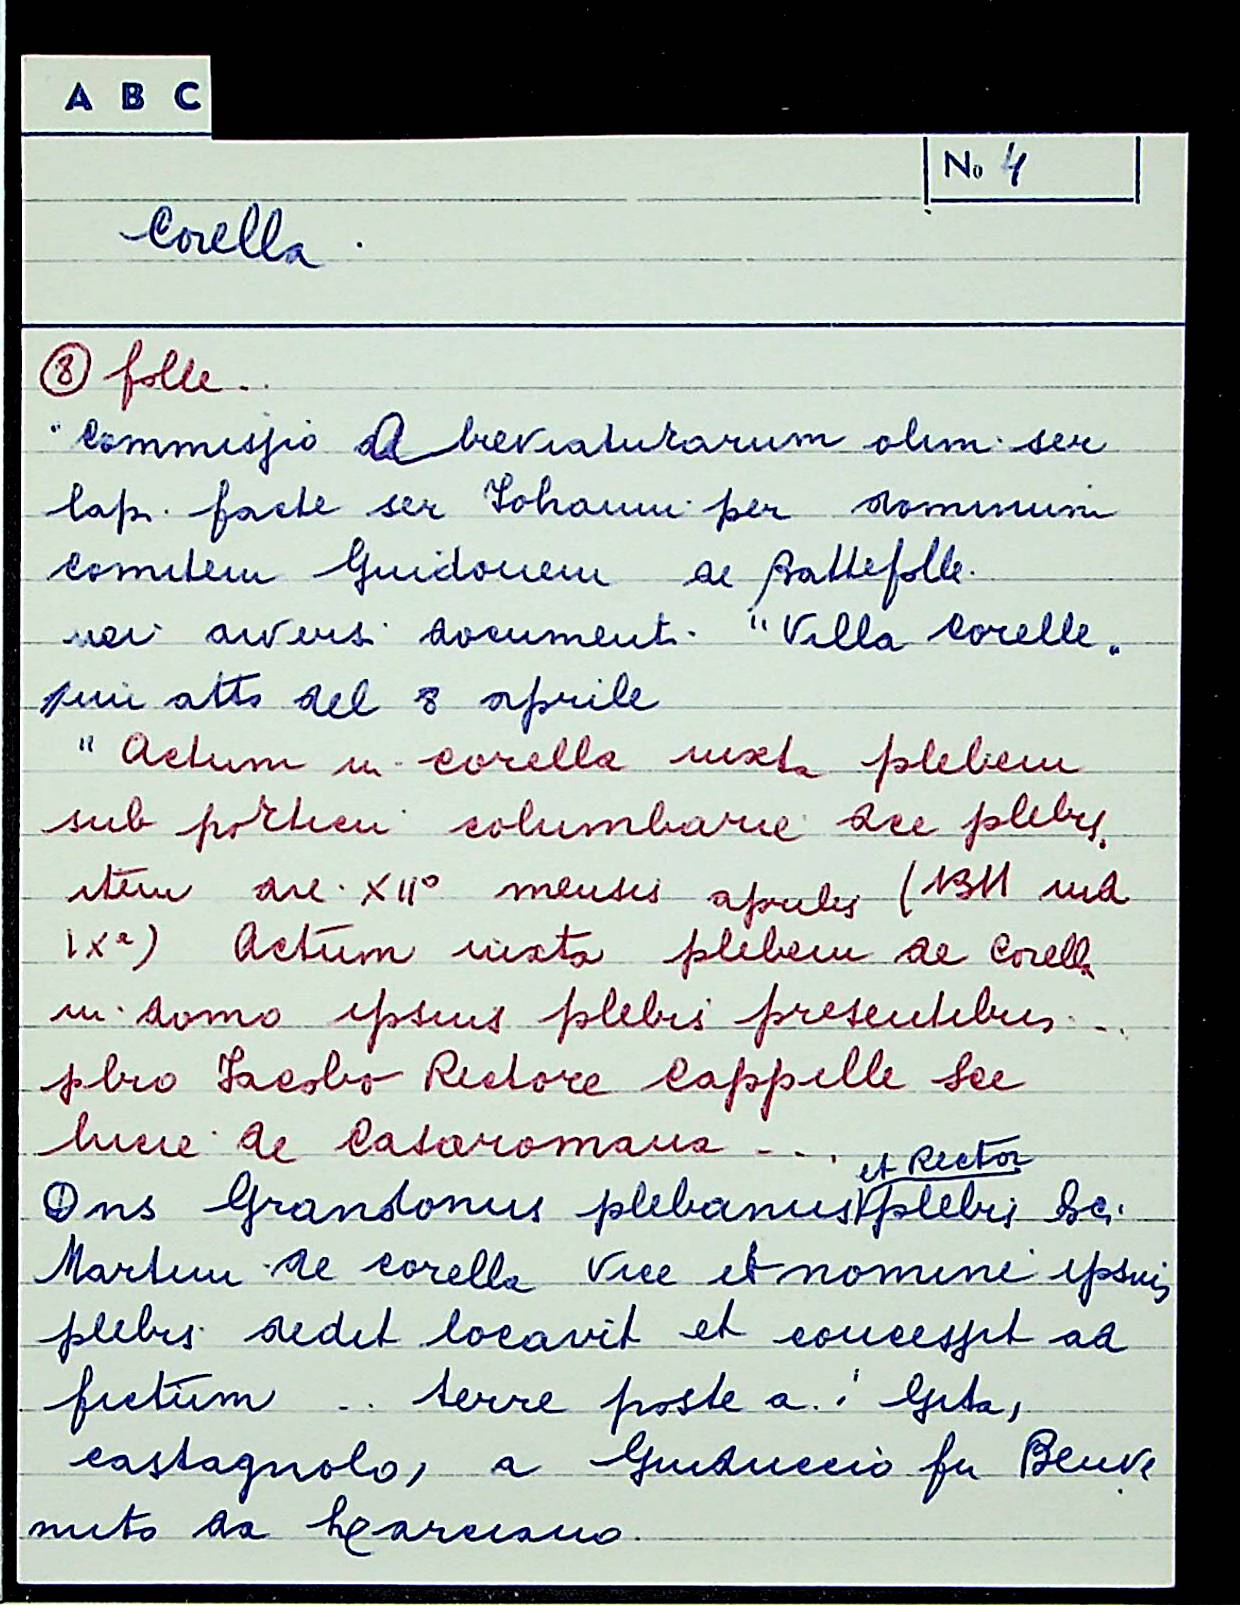 A B C
No 4
Corella.
⑧ folle..
"Commissio abreviaturarum olim ser
lap. facte ser Iohanni per dominum
comitem Guidonem de Battefolle.
nei diversi documenti "Villa Corelle"
più atto del 8 aprile
"Actum in corella iuxta plebem
sub porticu columbarie dce plebis.
item die XII° mensis aprilis (1311 ind
IXa) Actum iuxta plebem de Corella
in domo ipsius plebis presentibus...
pbro Iacobo Rectore Cappelle Sce
Lucie de Casaromana ....
et Rector
Dns Grandonus plebanus plebis Sci
Martini de corella vice et nomine ipsius
plebis dedit locavit et concessit ad
fictum .. terre poste a.
castagnolo, a Guiduccio fu Benve
nuto da